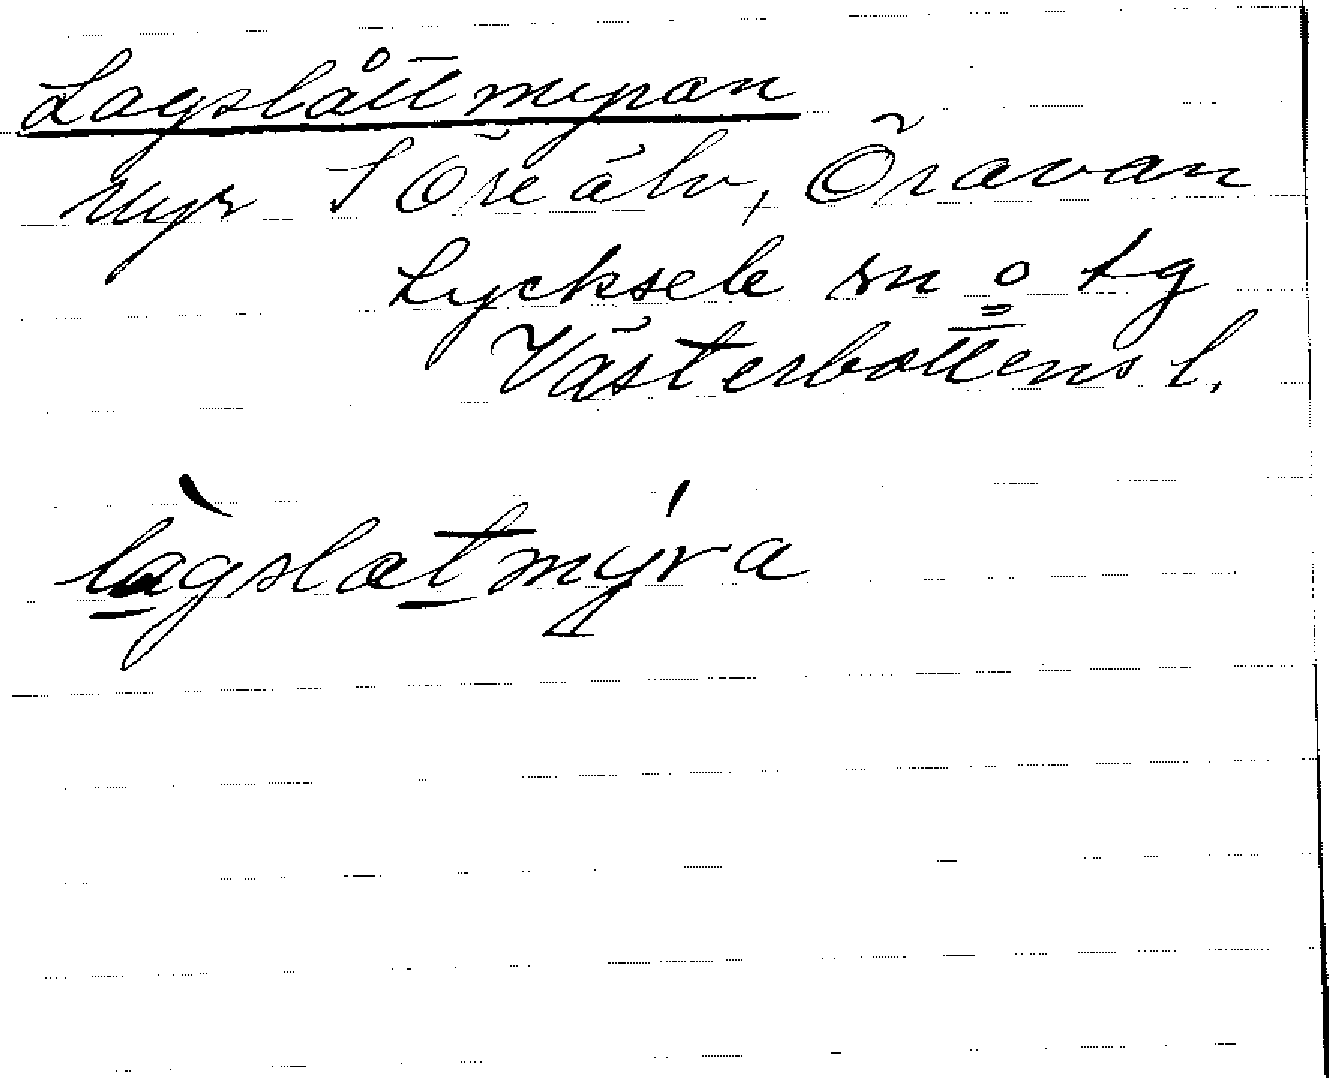 Lagslåttmyran
Myr S Öreälv, Öravan
Lycksele sn o tg
Västerbottens l.
làgslatmýra